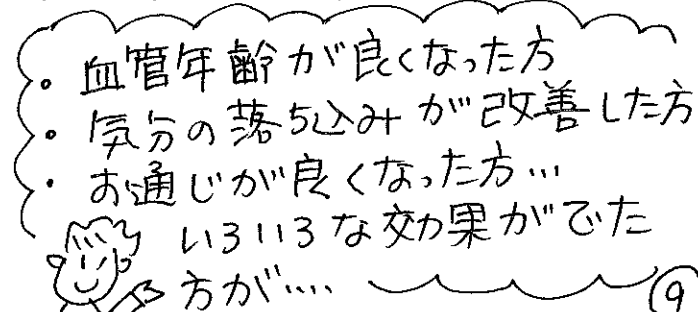 ・血管年齢が良くなった方
・気分の落ち込みが改善した方
・お通じが良くなった方…
いろいろな効果がでた
方が….
⑨